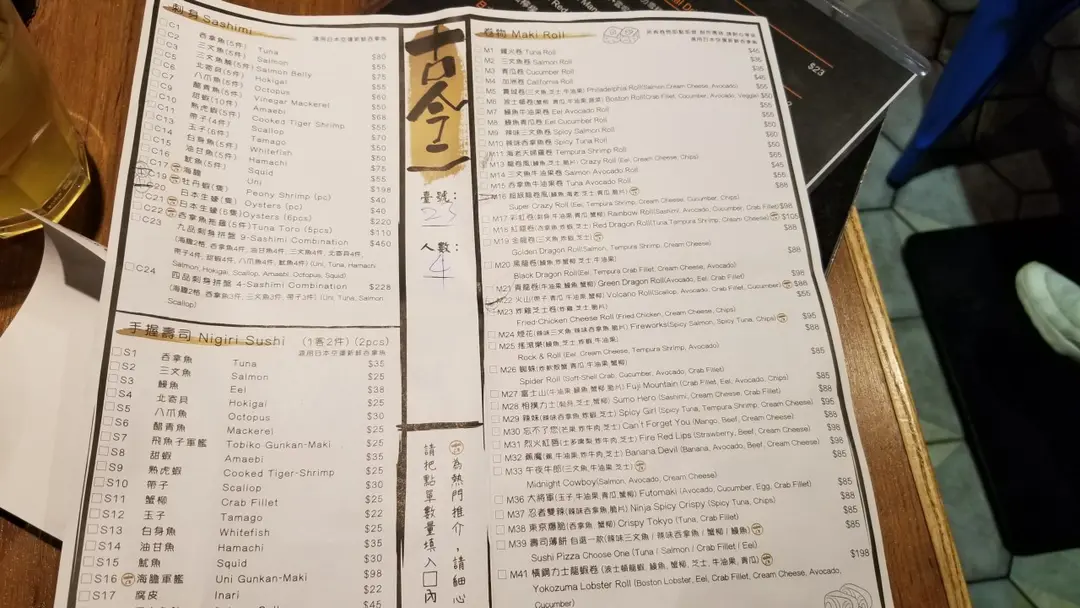 刺身 Sashimi
選用日本空運新鮮吞拿魚
C1 吞拿魚(5件) Tuna $80
C2 三文魚(5件) Salmon $55
C3 Salmon Belly $75
C5 北寄貝(5件) Hokigai $55
C6 八爪魚(5件) Octopus $60
C7 醋青魚(5件) Vinegar Mackerel $50
C8 甜蝦(10件) Amaebi $68
C9 熟虎蝦(5件) Cooked Tiger Shrimp $55
C11 帶子(4件) Scallop $70
C12 玉子(5件) Tamago $50
C14 白身魚(5件) Whitefish $50
C15 油甘魚(5件) Hamachi $50
C16 魷魚(5件) Squid $75
C17 海膽 Uni $55
C19 牡丹蝦(隻) Peony Shrimp (pc) $198
C20 日本生蠔(隻) Oysters (pc) $40
C21 日本生蠔(5隻) Oysters (6pcs) $220
C22 吞拿魚拖羅(5件) Tuna Toro (5pcs) $110
C23 九品刺身拼盤 9-Sashimi Combination $450
(海膽2格, 吞拿魚4件, 油甘魚4件, 三文魚4件, 北寄貝4件,
帶子4件, 甜蝦4件, 八爪魚4件, 魷魚4件) (Uni, Tuna, Hamachi,
Salmon, Hokigai, Scallop, Amaebi, Octopus, Squid)
C24 四品刺身拼盤 4-Sashimi Combination $228
(海膽2格, 吞拿魚3件, 三文魚3件, 帶子3件) (Uni, Tuna, Salmon,
Scallop)
手握壽司 Nigiri Sushi (1客2件) (2pcs)
選用日本空運新鮮吞拿魚
S1 吞拿魚 Tuna $35
S2 三文魚 Salmon $25
S3 鰻魚 Eel $38
S4 北寄貝 Hokigai $25
S5 八爪魚 Octopus $30
S6 醋青魚 Mackerel $25
S7 飛魚子軍艦 Tobiko Gunkan-Maki $25
S8 甜蝦 Amaebi $35
S9 熟虎蝦 Cooked Tiger-Shrimp $25
S10 帶子 Scallop $30
S11 蟹柳 Crab Fillet $25
S12 玉子 Tamago $22
S13 白身魚 Whitefish $25
S14 油甘魚 Hamachi $35
S15 魷魚 Squid $30
S16 海膽軍艦 Uni Gunkan-Maki $98
S17 腐皮 Inari $22
$45
古今二
臺號:
23
人數:
4
為熱門推介,請細心
請把點單數量填入□內
卷物 Maki Roll
選用日本空運新鮮吞拿魚
M1 鐵火卷 Tuna Roll $45
M2 三文魚卷 Salmon Roll
M3 青瓜卷 Cucumber Roll
M4 加洲卷 California Roll
M5 費城卷(三文魚,芝士,牛油果) Philadelphia Roll(Salmon,Cream Cheese, Avocado) $55
M6 波士頓卷(蟹柳,青瓜,牛油果,蔬菜) Boston Roll(Crab Fillet, Cucumber, Avocado, Veggie) $50
M7 鰻魚牛油果卷 Eel Avocado Roll
M8 鰻魚青瓜卷 Eel Cucumber Roll
M9 辣味三文魚卷 Spicy Salmon Roll
M10 辣味吞拿魚卷 Spicy Tuna Roll
M11 海老天婦羅卷 Tempura Shrimp Roll
M13 龍卷風(鰻魚,芝士,脆片) Crazy Roll (Eel, Cream Cheese, Chips)
M14 三文魚牛油果卷 Salmon Avocado Roll
M15 吞拿魚牛油果卷 Tuna Avocado Roll
M16 超級龍卷風(鰻魚,海老,芝士,青瓜,脆片) $88
Super Crazy Roll (Eel, Tempura Shrimp, Cream Cheese, Cucumber, Chips)
M17 彩虹卷(刺身,牛油果,青瓜,蟹柳) Rainbow Roll(Sashimi, Avocado, Cucumber, Crab Fillet) $98
M18 紅龍卷(吞拿魚,炸蝦,芝士) Red Dragon Roll(Tuna,Tempura Shrimp, Cream Cheese) $105
M19 金龍卷(三文魚,炸蝦,芝士)
Golden Dragon Roll(Salmon, Tempura Shrimp, Cream Cheese) $88
M20 黑龍卷(鰻魚,炸蟹柳,芝士,牛油果)
Black Dragon Roll(Eel, Tempura Crab Fillet, Cream Cheese, Avocado) $88
M21 青龍卷(牛油果,鰻魚,蟹柳) Green Dragon Roll(Avocado, Eel, Crab Fillet) $98
M22 火山(帶子,青瓜,牛油果,蟹柳) Volcano Roll(Scallop, Avocado, Crab Fillet, Cucumber) $88
M23 炸雞芝士卷(炸雞,芝士,脆片) $55
Fried-Chicken Cheese Roll (Fried Chicken, Cream Cheese, Chips)
M24 煙花(辣味三文魚,辣味吞拿魚,脆片) Fireworks(Spicy Salmon, Spicy Tuna, Chips) $95
M25 搖滾樂(鰻魚,芝士,炸蝦,牛油果) $88
Rock & Roll (Eel, Cream Cheese, Tempura Shrimp, Avocado)
M26 蜘蛛(炸軟殼蟹,青瓜,牛油果,蟹柳) $85
Spider Roll (Soft-Shell Crab, Cucumber, Avocado, Crab Fillet)
M27 富士山(牛油果,鰻魚,蟹柳,脆片) Fuji Mountain (Crab Fillet, Eel, Avocado, Chips) $85
M28 相撲力士(刺身,芝士,蟹柳) Sumo Hero (Sashimi, Cream Cheese, Crab Fillet) $88
M29 辣妹(辣味吞拿魚,炸蝦,芝士) Spicy Girl (Spicy Tuna, Tempura Shrimp, Cream Cheese) $95
M30 忘不了您(芒果,炸牛肉,芝士) Can't Forget You (Mango, Beef, Cream Cheese) $88
M31 烈火紅唇(士多啤梨,炸牛肉,芝士) Fire Red Lips (Strawberry, Beef, Cream Cheese) $88
M32 蕉魔(蕉,牛油果,炸牛肉,芝士) Banana Devil (Banana, Avocado, Beef, Cream Cheese) $98
M33 午夜牛郎(三文魚,牛油果,芝士) $98
Midnight Cowboy(Salmon, Avocado, Cream Cheese)
M36 大將軍(玉子,牛油果,青瓜,蟹柳) Futomaki (Avocado, Cucumber, Egg, Crab Fillet) $85
M37 忍者雙辣(辣味三文魚,辣味吞拿魚,脆片) Ninja Spicy Crispy (Spicy Tuna, Chips) $88
M38 東京爆脆(吞拿魚,蟹柳) Crispy Tokyo (Tuna, Crab Fillet) $85
M39 壽司薄餅 自選一款(辣味三文魚 / 辣味吞拿魚 / 蟹柳 / 鰻魚) $85
Sushi Pizza Choose One (Tuna / Salmon / Crab Fillet / Eel)
M41 橫鋼力士龍蝦卷 (波士頓龍蝦, 鰻魚, 蟹柳, 芝士, 牛油果, 青瓜) $198
Yokozuma Lobster Roll (Boston Lobster, Eel, Crab Fillet, Cream Cheese, Avocado,
Cucumber)
$23